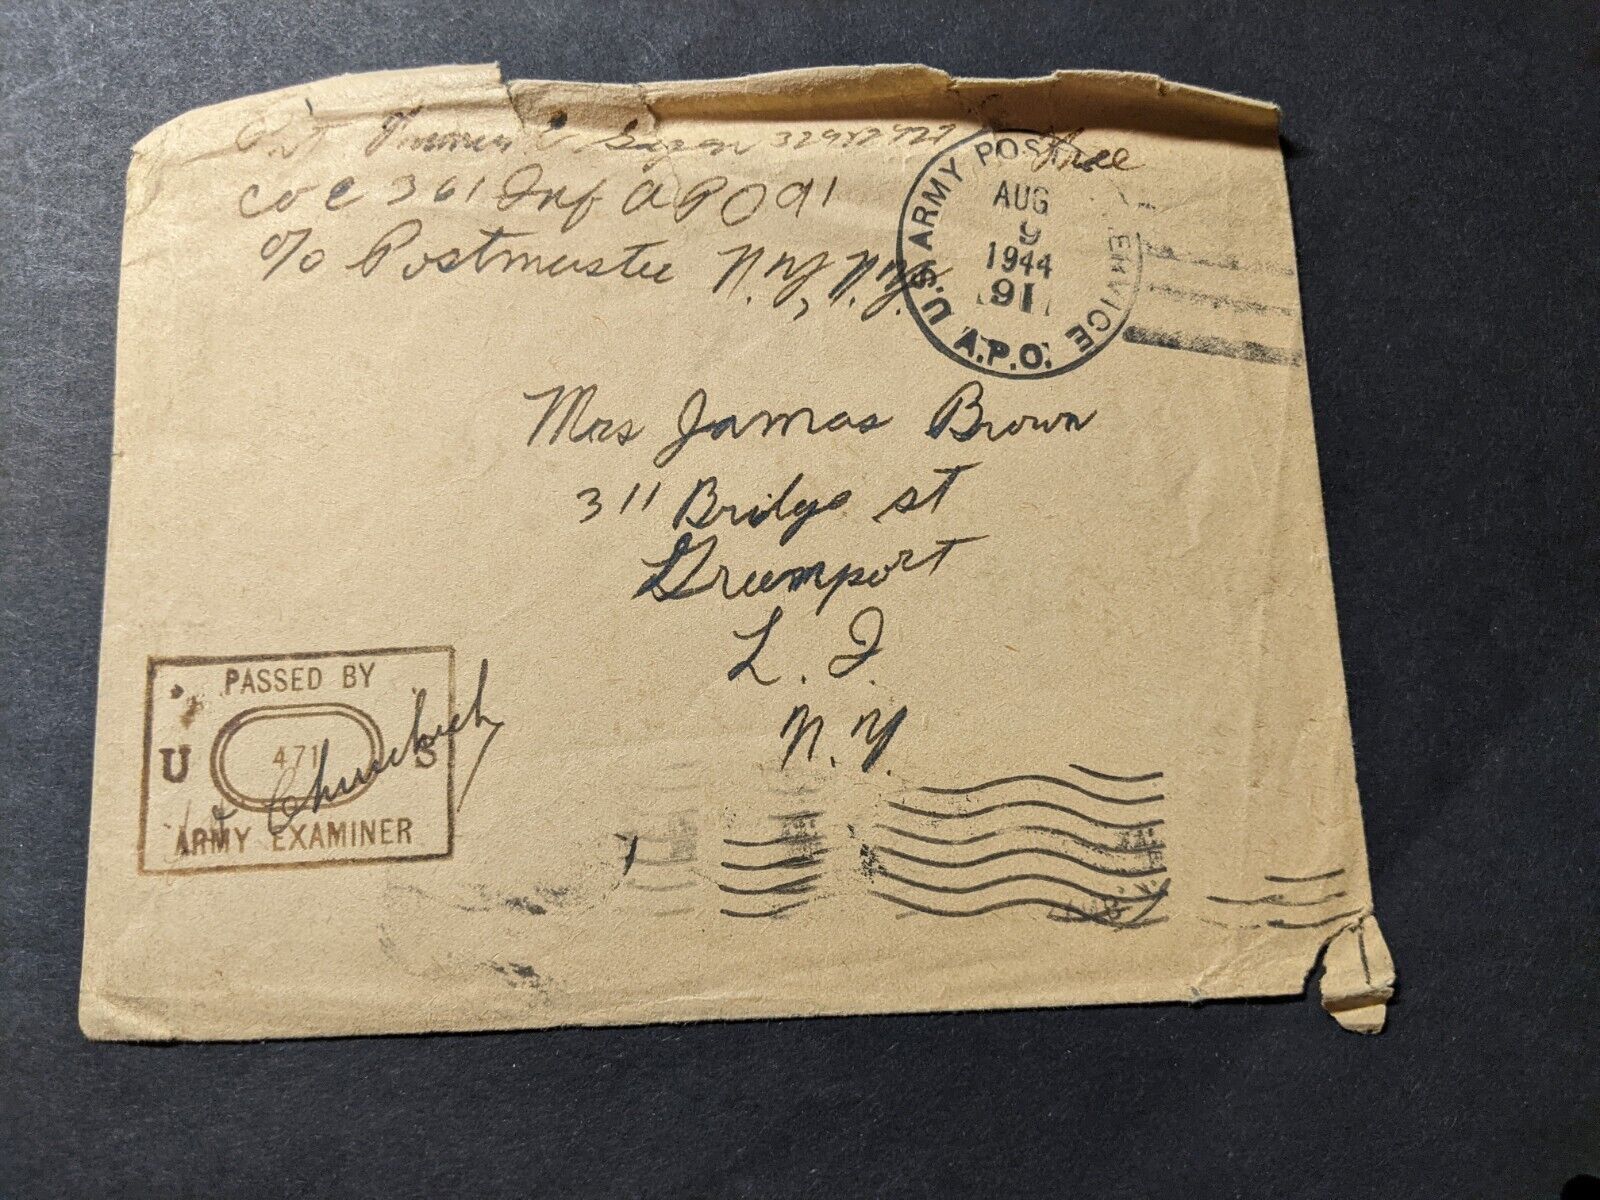 Pvt 32982927 Free
Co C 361 Inf APO 91
c/o Postmaster N.Y, N.Y.
U.S. ARMY POSTAL SERVICE
AUG
9
1944
91
A.P.O.
Mrs Jamas Brown
311 Bridge st
Greemport
L. I.
N.Y.
PASSED BY
U 471 S
ARMY EXAMINER